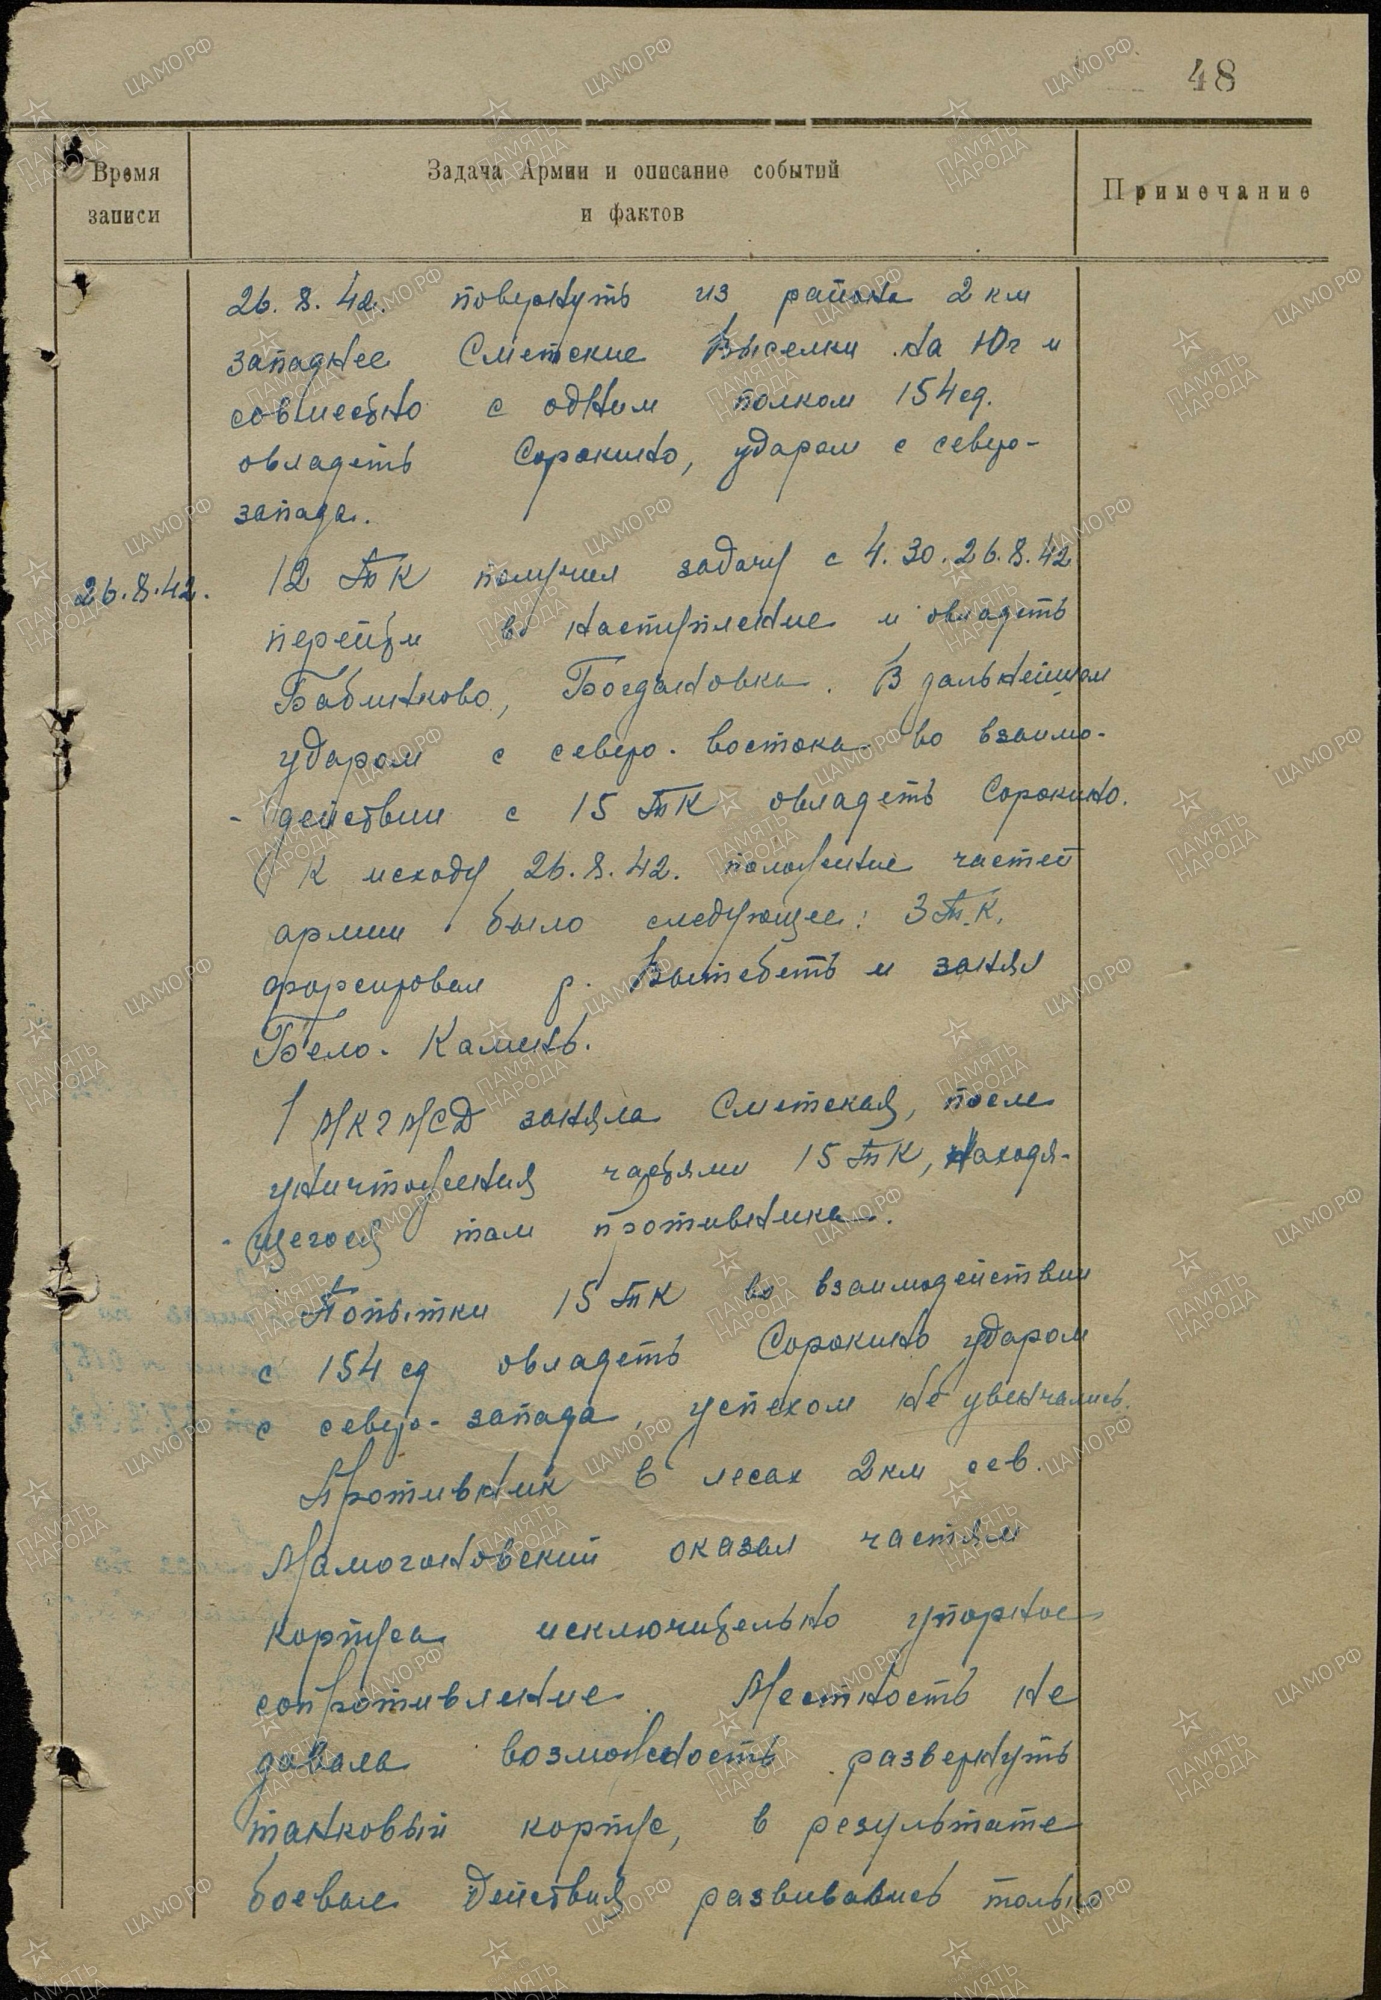 48
Время записи
Задача Армии и описание событий
и фактов
Примечание
26.8.42. повернуть из района 2 км
западнее Сметские Выселки на Юг и
совместно с одним полком 154 сд.
овладеть Сорокино, ударом с северо-
запада.
26.8.42. 12 ТК получил задачу с 4.30. 26.8.42
перейти в наступление и овладеть
Бабинково, Богдановка. В дальнейшем
ударом с северо-востока во взаимо-
-действии с 15 ТК овладеть Сорокино.
К исходу 26.8.42. положение частей
армии было следующее: 3 Т.К.
форсировал р. Вытебеть и занял
Бело-Камень.
1 МКГМСД заняла Сметская, после
уничтожения частями 15 ТК, находя-
-щегося там противника.
Попытки 15 ТК во взаимодействии
с 154 сд овладеть Сорокино ударом
с северо-запада, успехом не увенчались.
Противник в лесах 2 км сев.
Мамогоновский оказал частям
корпуса исключительно упорное
сопротивление. Местность не
давала возможность развернуть
танковый корпус, в результате
боевые действия развивались только
ЦАМО РФ
ПАМЯТЬ НАРОДА